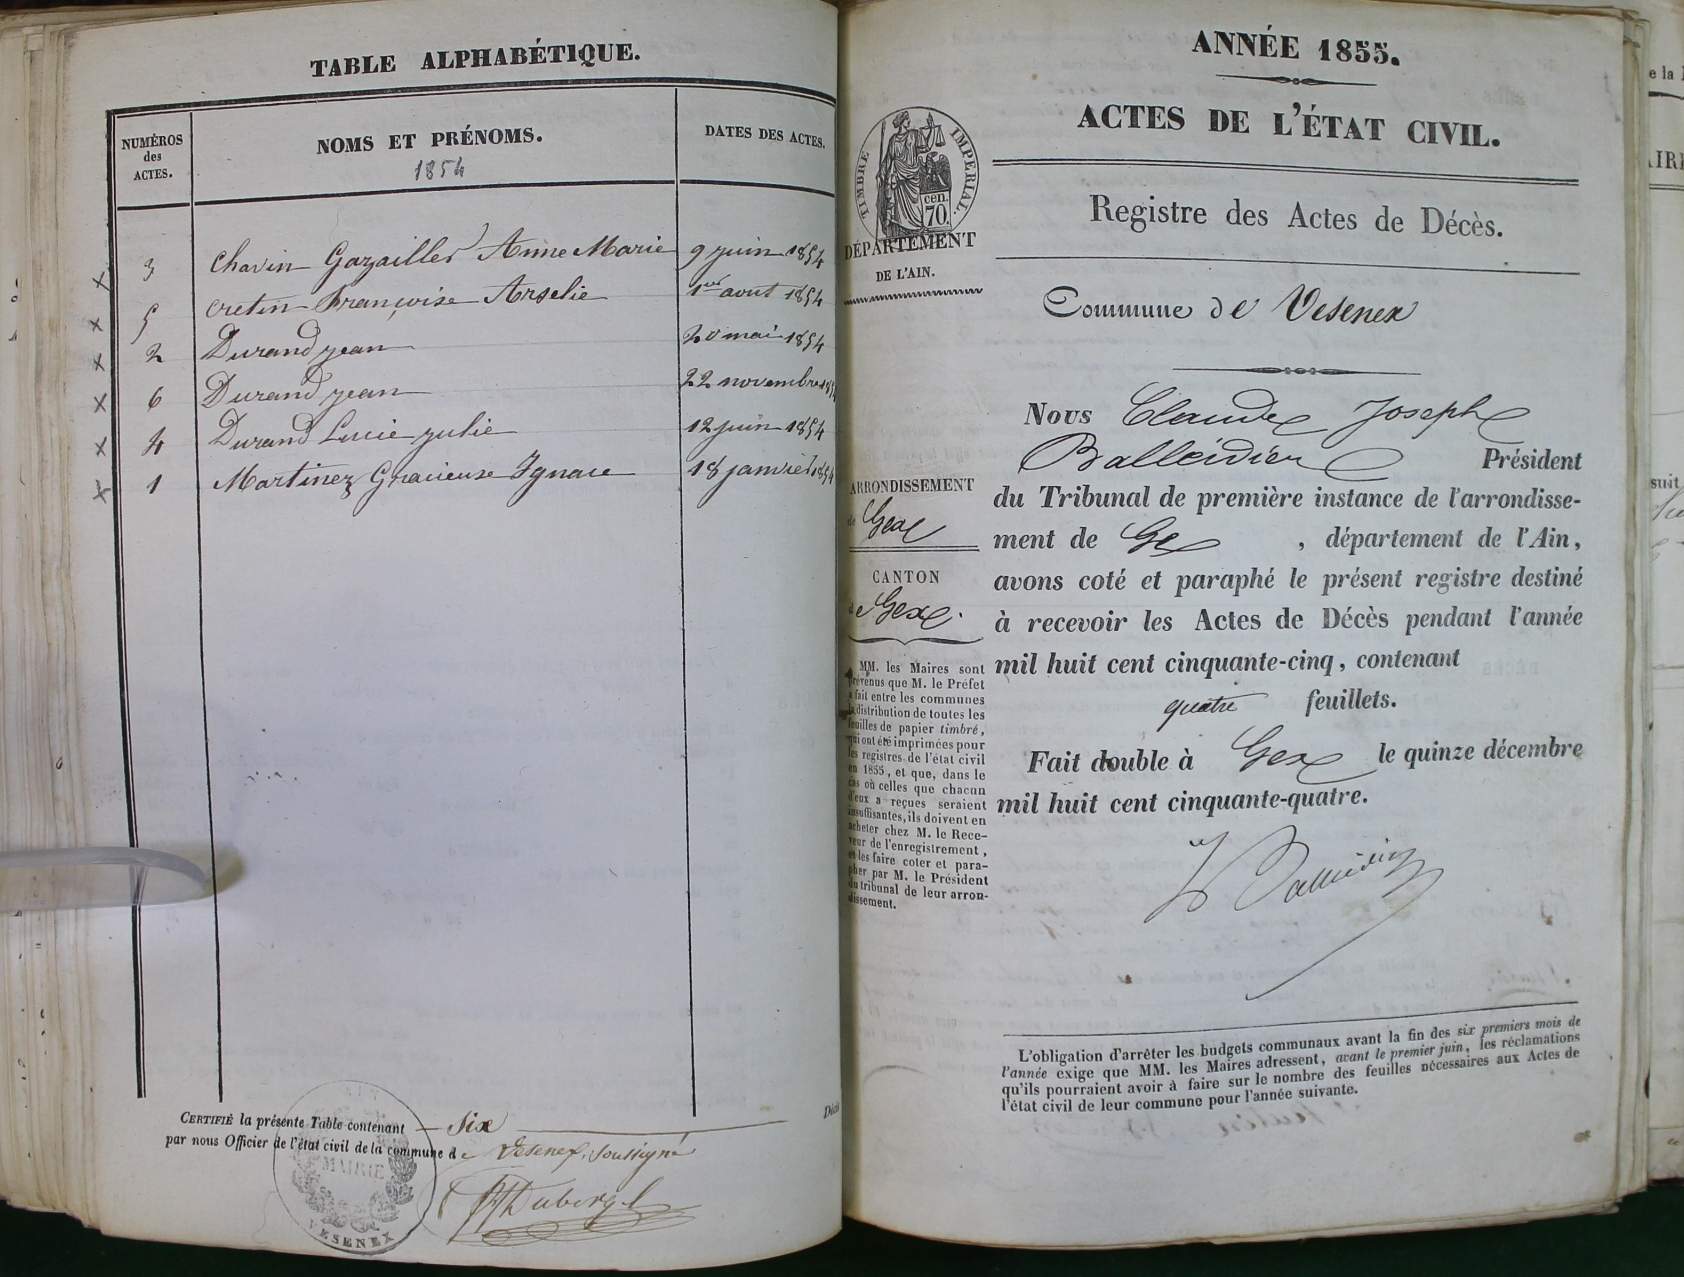 TABLE ALPHABÉTIQUE.
NUMÉROS
des
ACTES.
NOMS ET PRÉNOMS.
1854
DATES DES ACTES.
3 Chavin Gazailler Anne Marie 9 juin 1854
5 Cretin Françoise Arselie 1er aout 1854
2 Durand jean 20 mai 1854
6 Durand jean 22 novembre 1854
4 Durand Lucie julie 12 juin 1854
1 Martinez Gracieuse Ignace 18 janvier 1854
CERTIFIÉ la présente Table contenant six Décès
par nous Officier de l'état civil de la commune de Vesenex, soussigné
MAIRIE
VESENEX
ANNÉE 1855.
ACTES DE L'ÉTAT CIVIL.
TIMBRE IMPÉRIAL.
70 cen.
DÉPARTEMENT
DE L'AIN.
Registre des Actes de Décès.
Commune de Vesenex
Nous Claude Joseph
Balleidier Président
du Tribunal de première instance de l'arrondisse-
ment de Gex, département de l'Ain,
avons coté et paraphé le présent registre destiné
à recevoir les Actes de Décès pendant l'année
mil huit cent cinquante-cinq, contenant
quatre feuillets.
Fait double à Gex le quinze décembre
mil huit cent cinquante-quatre.
ARRONDISSEMENT
de Gex
CANTON
de Gex.
MM. les Maires sont
prévenus que M. le Préfet
a fait entre les communes
la distribution de toutes les
feuilles de papier timbré,
qui ont été imprimées pour
les registres de l'état civil
en 1855, et que, dans le
cas où celles que chacun
d'eux a reçues seraient
insuffisantes, ils doivent en
acheter chez M. le Rece-
veur de l'enregistrement,
et les faire coter et para-
pher par M. le Président
du tribunal de leur arron-
dissement.
L'obligation d'arrêter les budgets communaux avant la fin des six premiers mois de
l'année exige que MM. les Maires adressent, avant le premier juin, les réclamations
qu'ils pourraient avoir à faire sur le nombre des feuilles nécessaires aux Actes de
l'état civil de leur commune pour l'année suivante.